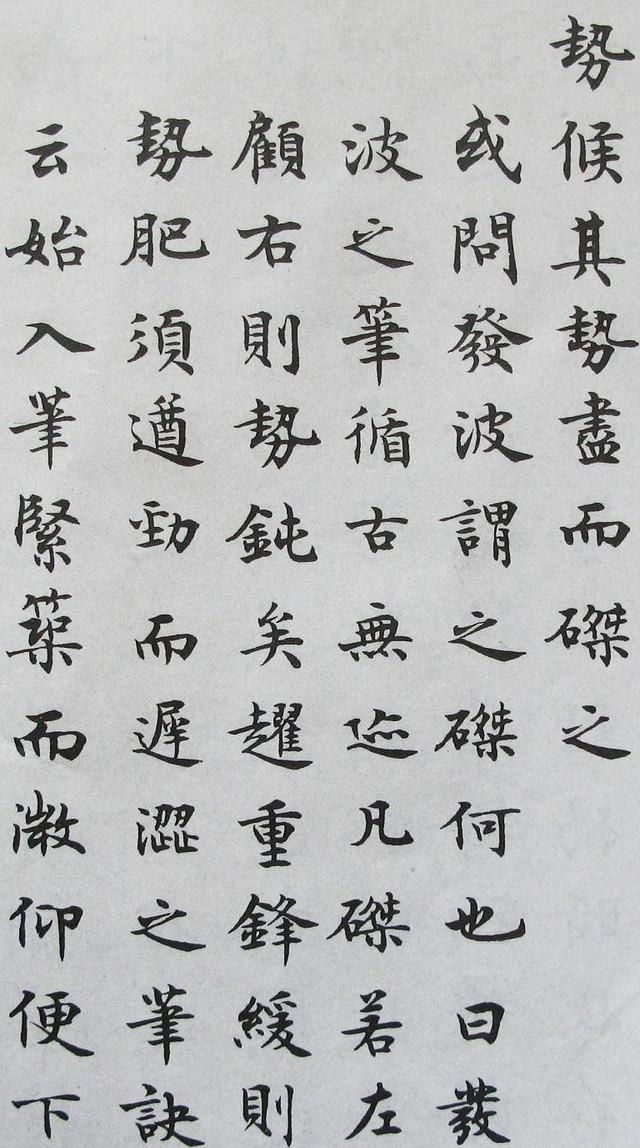 勢候其勢盡而磔之
或問發波謂之磔何也曰發
波之筆循古無迹凡磔若左
顧右則勢鈍矣趯重鋒緩則
勢肥須遒勁而遲澀之筆訣
云始入筆緊築而微仰便下